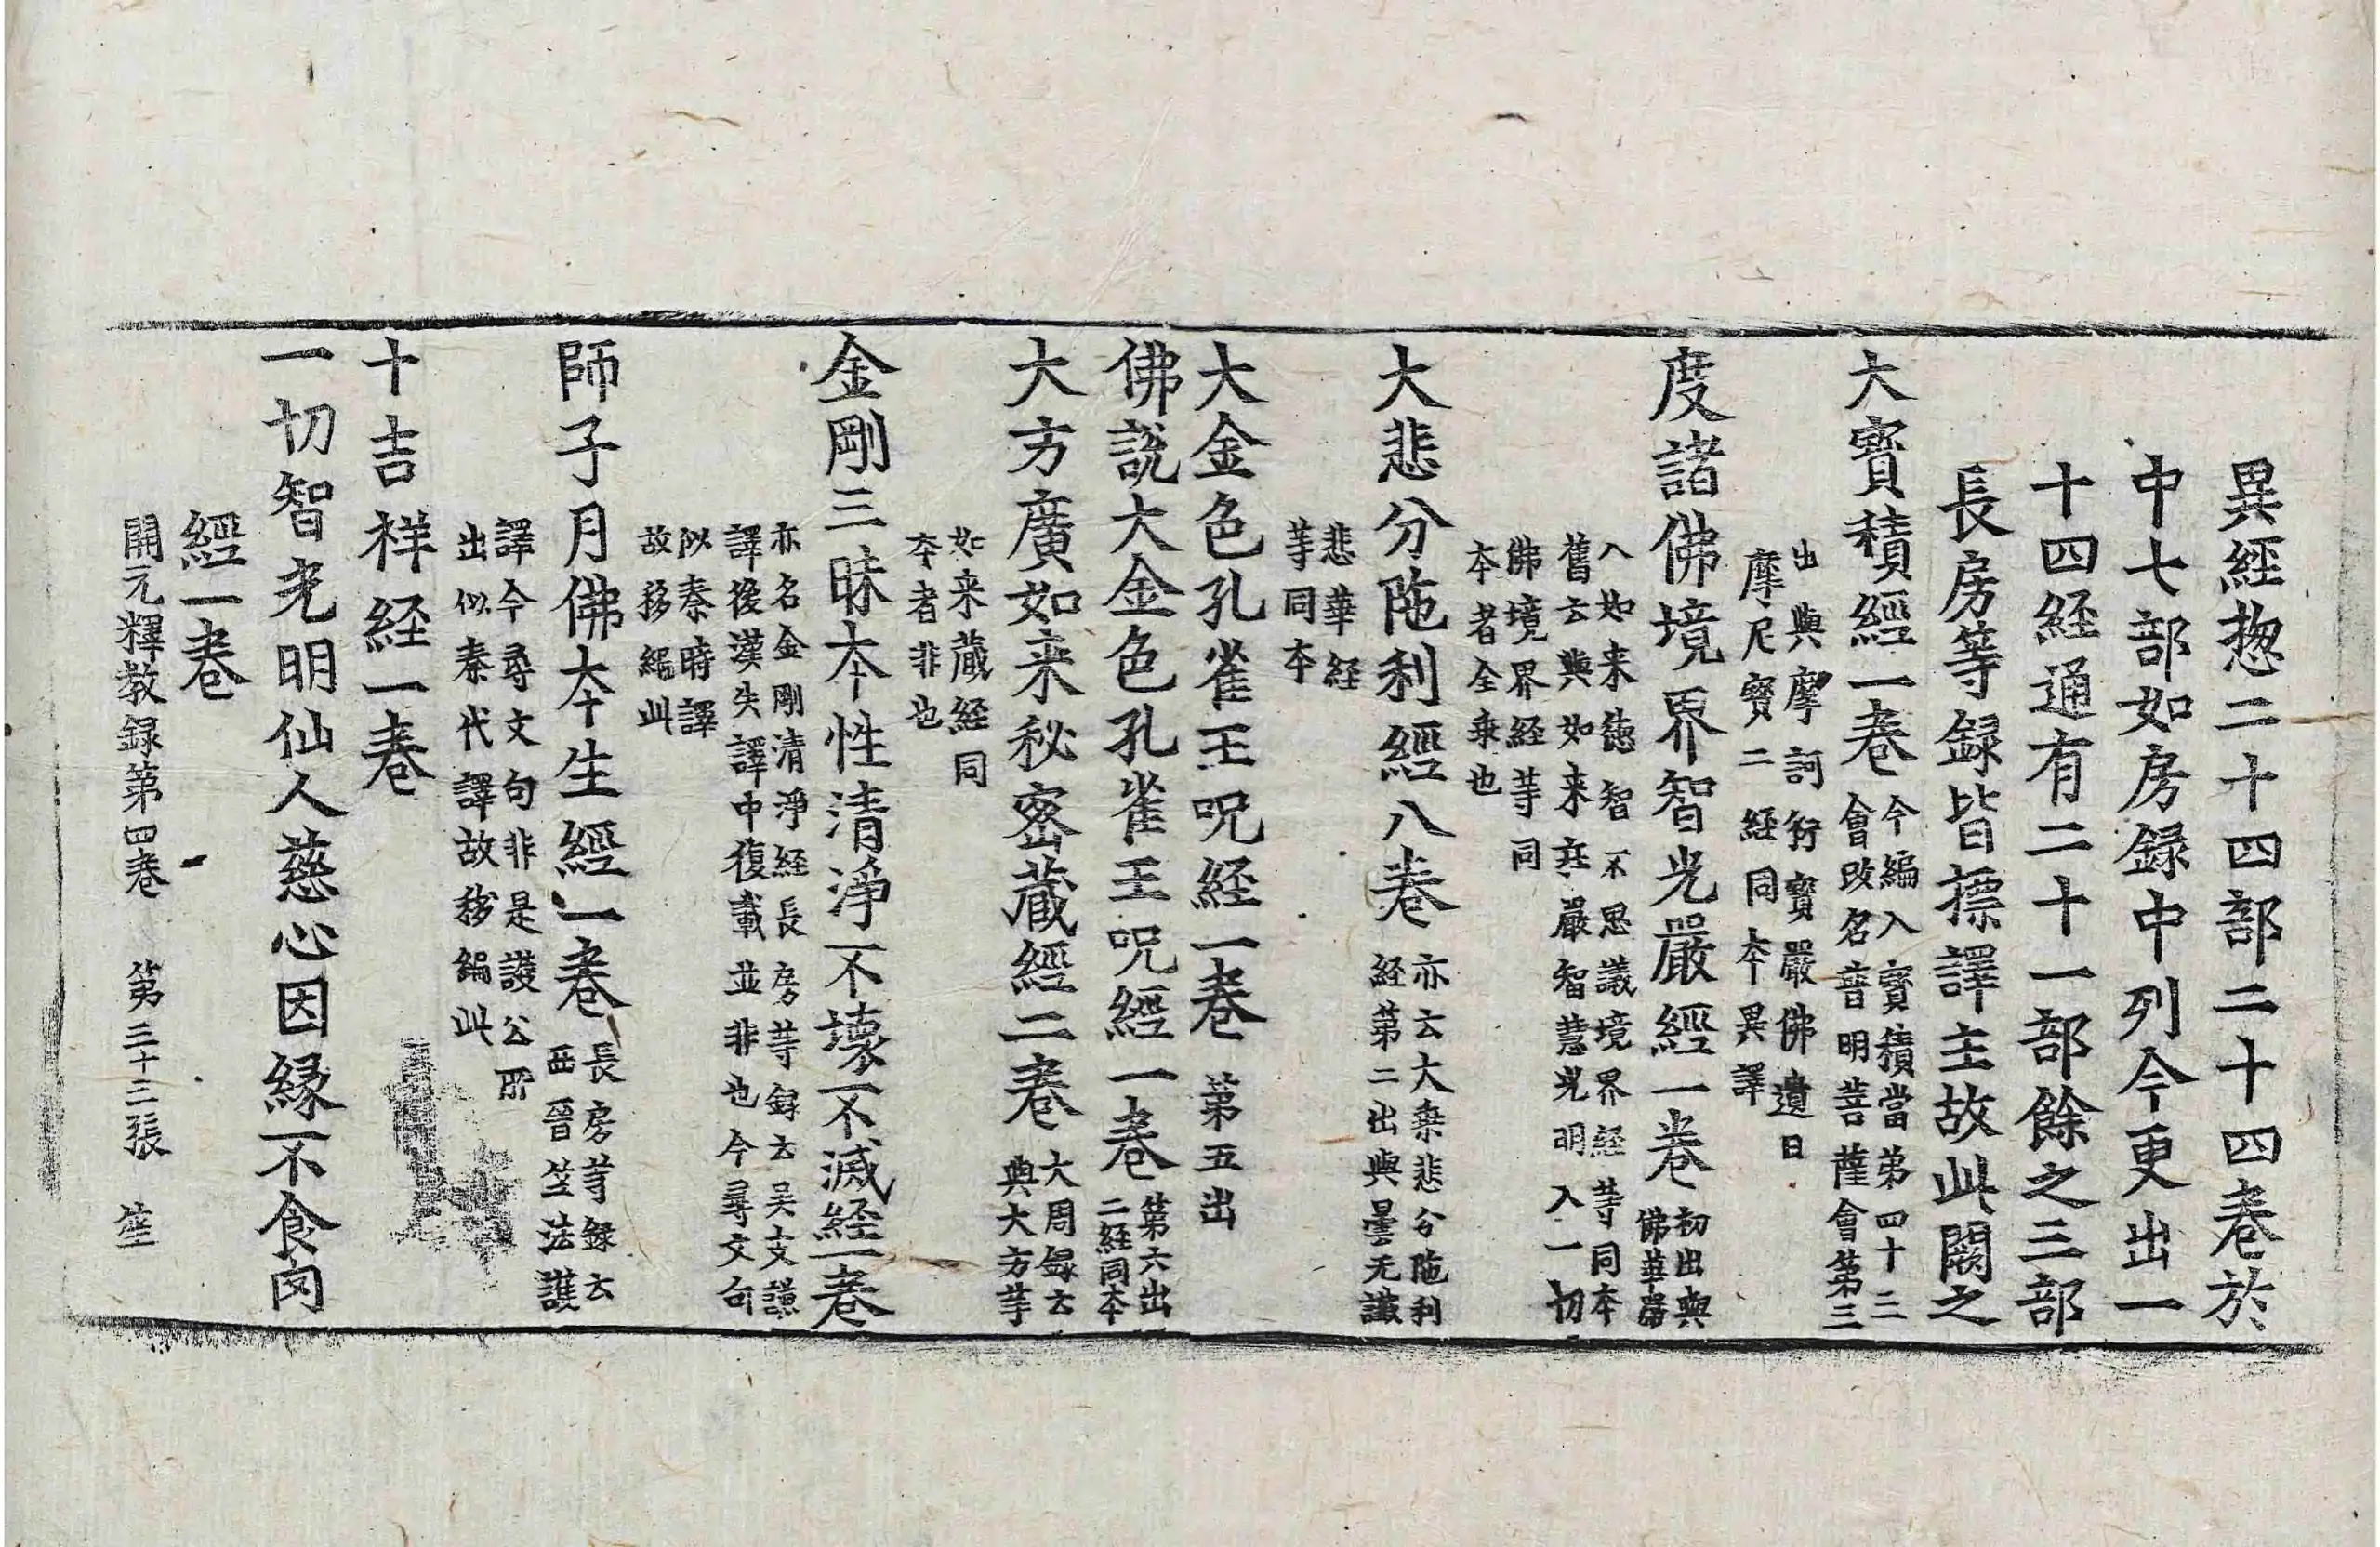 異經惣二十四部二十四卷於
中七部如房録中列今更出一
十四経通有二十一部餘之三部
長房等録皆摽譯主故此闕之
大寳積經一卷今編入寳積當第四十三
會改名普明菩薩會第三
出與摩訶衍寳嚴佛遺日
摩尼寳二経同夲異譯
度諸佛境界智光嚴經一卷初出與
佛華嚴
入如来徳智不思議境界経等同夲
舊云與如来莊嚴智慧光明入一切
佛境界経等同
夲者全乗也
大悲分陁利經八卷亦云大乗悲分陁利
経第二出與曇无讖
悲華経
等同夲
大金色孔雀王呪経一卷第五出
佛說大金色孔雀王呪經一卷第六出
二経同夲
大方廣如来秘密蔵經二卷大周録云
與大方等
如来蔵経同
夲者非也
金剛三昧夲性清淨不壊不滅経一卷
亦名金剛清淨経長房等録云吴支謙
譯後漢失譯中復載並非也今尋文句
似秦時譯
故移編此
師子月佛夲生經一卷長房等録云
西晉竺法護
譯今尋文句非是護公所
出似秦代譯故移編此
十吉祥経一卷
一切智光明仙人慈心因緣不食肉
經一卷
開元釋教録第四卷 第三十三張 笙